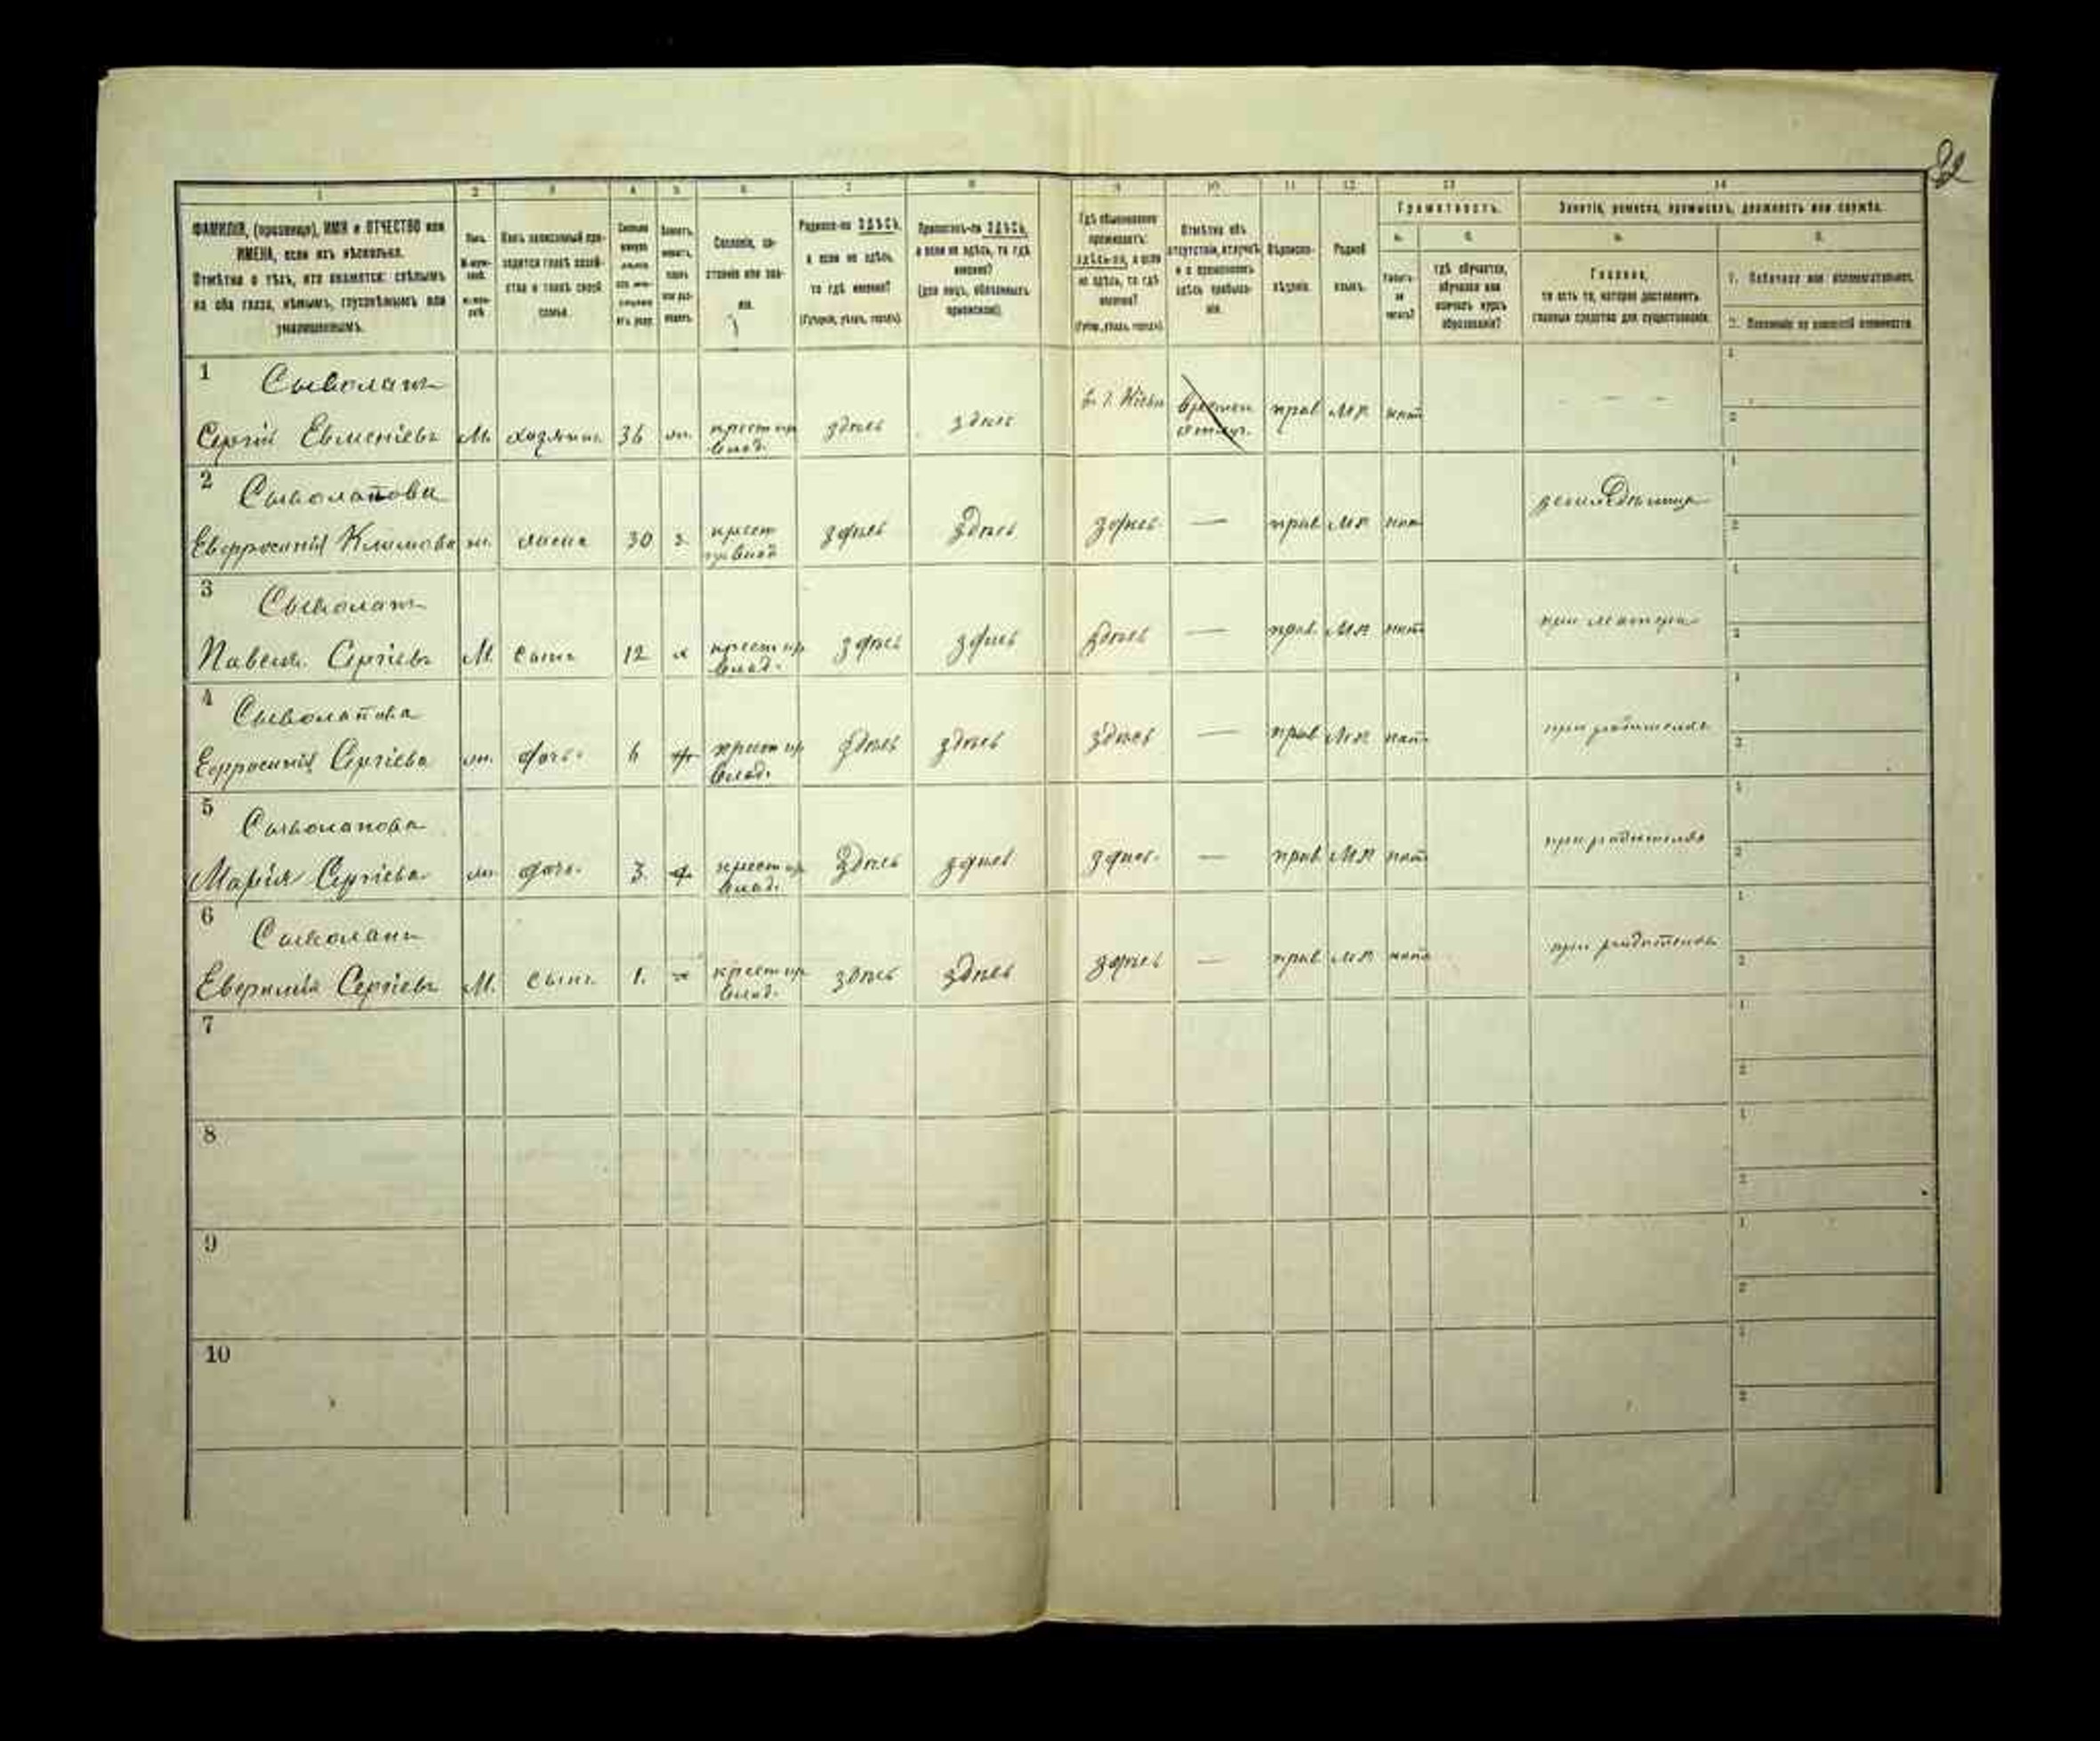 1 2 3 4 5 6 7 8 9 10 11 12 13 14
ФАМИЛІЯ, (прозвище), ИМЯ и ОТЧЕСТВО или
ИМЕНА, если ихъ нѣсколько.
Отмѣтка о тѣхъ, кто окажется: слѣпымъ
на оба глаза, нѣмымъ, глухонѣмымъ или
умалишеннымъ.
Полъ.
Какъ записанный при-
ходится главѣ хозяй-
ства и главѣ своей
семьи.
Сословіе, со-
стояніе или зва-
ніе.
Родился-ли ЗДѢСЬ,
а если не здѣсь,
то гдѣ именно?
(Губернія, уѣздъ, городъ).
Приписанъ-ли ЗДѢСЬ,
а если не здѣсь, то гдѣ
именно?
(для лицъ, обязанныхъ
припиской).
Гдѣ обыкновенно
проживаетъ:
здѣсь-ли, а если
не здѣсь, то гдѣ
именно?
(Губер., уѣздъ, городъ).
Отмѣтка объ
отсутствіи, отлучкѣ
и о временномъ
здѣсь пребыва-
ніи.
Вѣроиспо-
вѣданіе.
Родной
языкъ.
Грамотность.
а. б.
Умѣетъ-
ли
читать?
гдѣ обучается,
обучался или
кончилъ курсъ
образованія?
Занятіе, ремесло, промыселъ, должность или служба.
а. б.
Главное,
то есть то, которое доставляетъ
главныя средства для существованія.
1. Побочное или вспомогательное.
2. Положеніе по воинской повинности.
1 Сыволапъ
Сергій Евменіевъ М. хозяинъ 36 ж. крест ир влад. здѣсь здѣсь в г. Кіевѣ времен отлуч. прав М.Р. нѣтъ — — —
2 Сыволапова
Евфросинія Климова ж. жена 30 з. крест здѣсь здѣсь здѣсь — прав М.Р. нѣтъ
3 Сыволапъ
Павелъ Сергіевъ М. сынъ 12 х крест ир влад. здѣсь здѣсь здѣсь — прав. М.Р. нѣтъ при матери
4 Сыволапова
Ефросинія Сергіева ж. дочь 6 крест ир влад. здѣсь здѣсь здѣсь — прав М.Р. нѣтъ при родителяхъ
5 Сыволапова
Марія Сергіева ж. дочь 3. крест ир влад. здѣсь здѣсь здѣсь — прав М.Р. нѣтъ при родителяхъ
6 Сыволапъ
Сергіевъ М. сынъ 1. х крест ир влад. здѣсь здѣсь здѣсь — прав М.Р. нѣтъ при родителяхъ
7
8
9
10